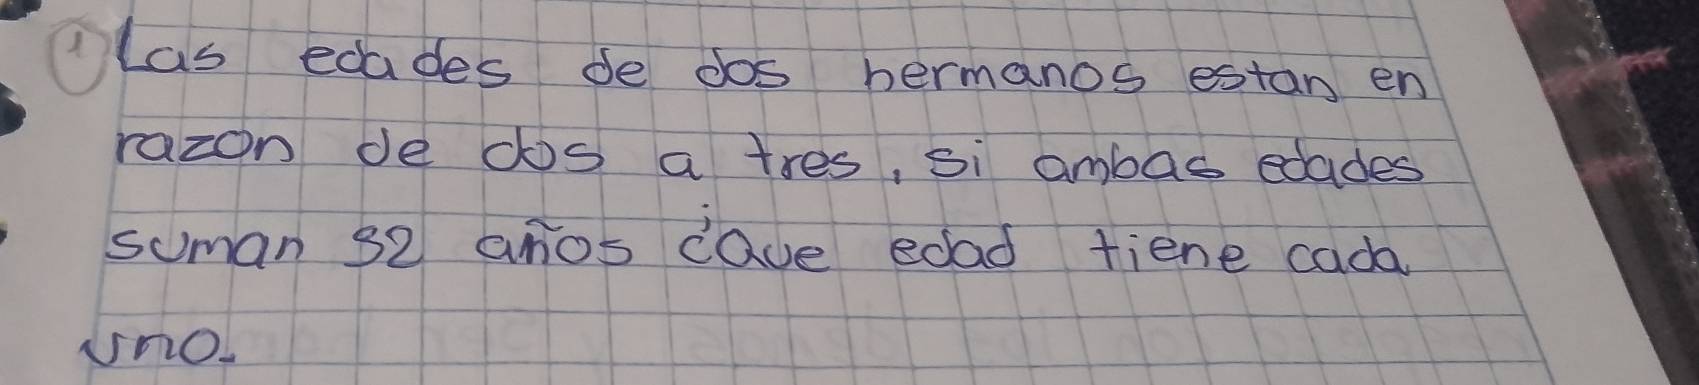 ① Las edades de dos hermanos estan en
razon de dos a tres, si ambas edades
suman 52 años ¿Que edad tiene cada
uno.